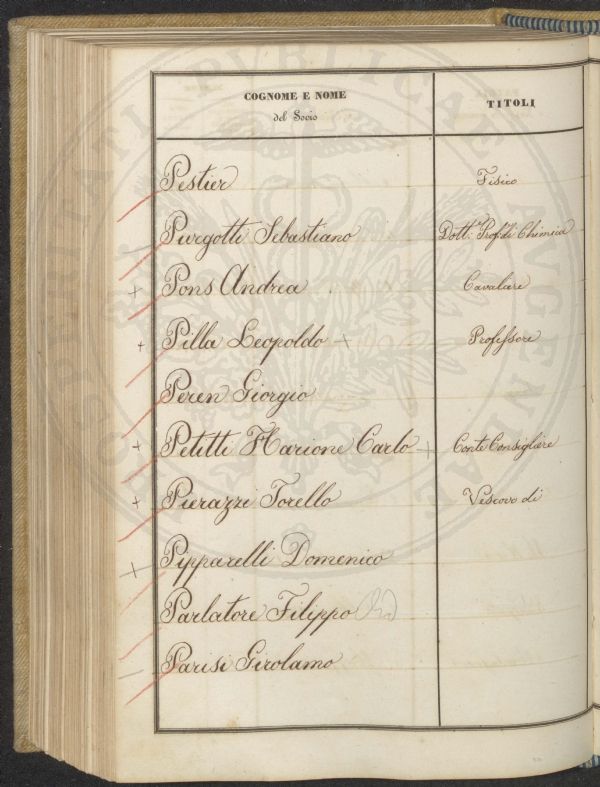 COGNOME E NOME
del Socio
TITOLI
Pestier Fisico
Purgotti Sebastiano Dott. Prof. di Chimica
Pons Andrea Cavaliere
Pilla Leopoldo Professore
Peren Giorgio
Petitti Harione Carlo Conte Consigliere
Pierazzi Torello Vescovo di
Pipparelli Domenico
Parlatore Filippo
Parisi Girolamo